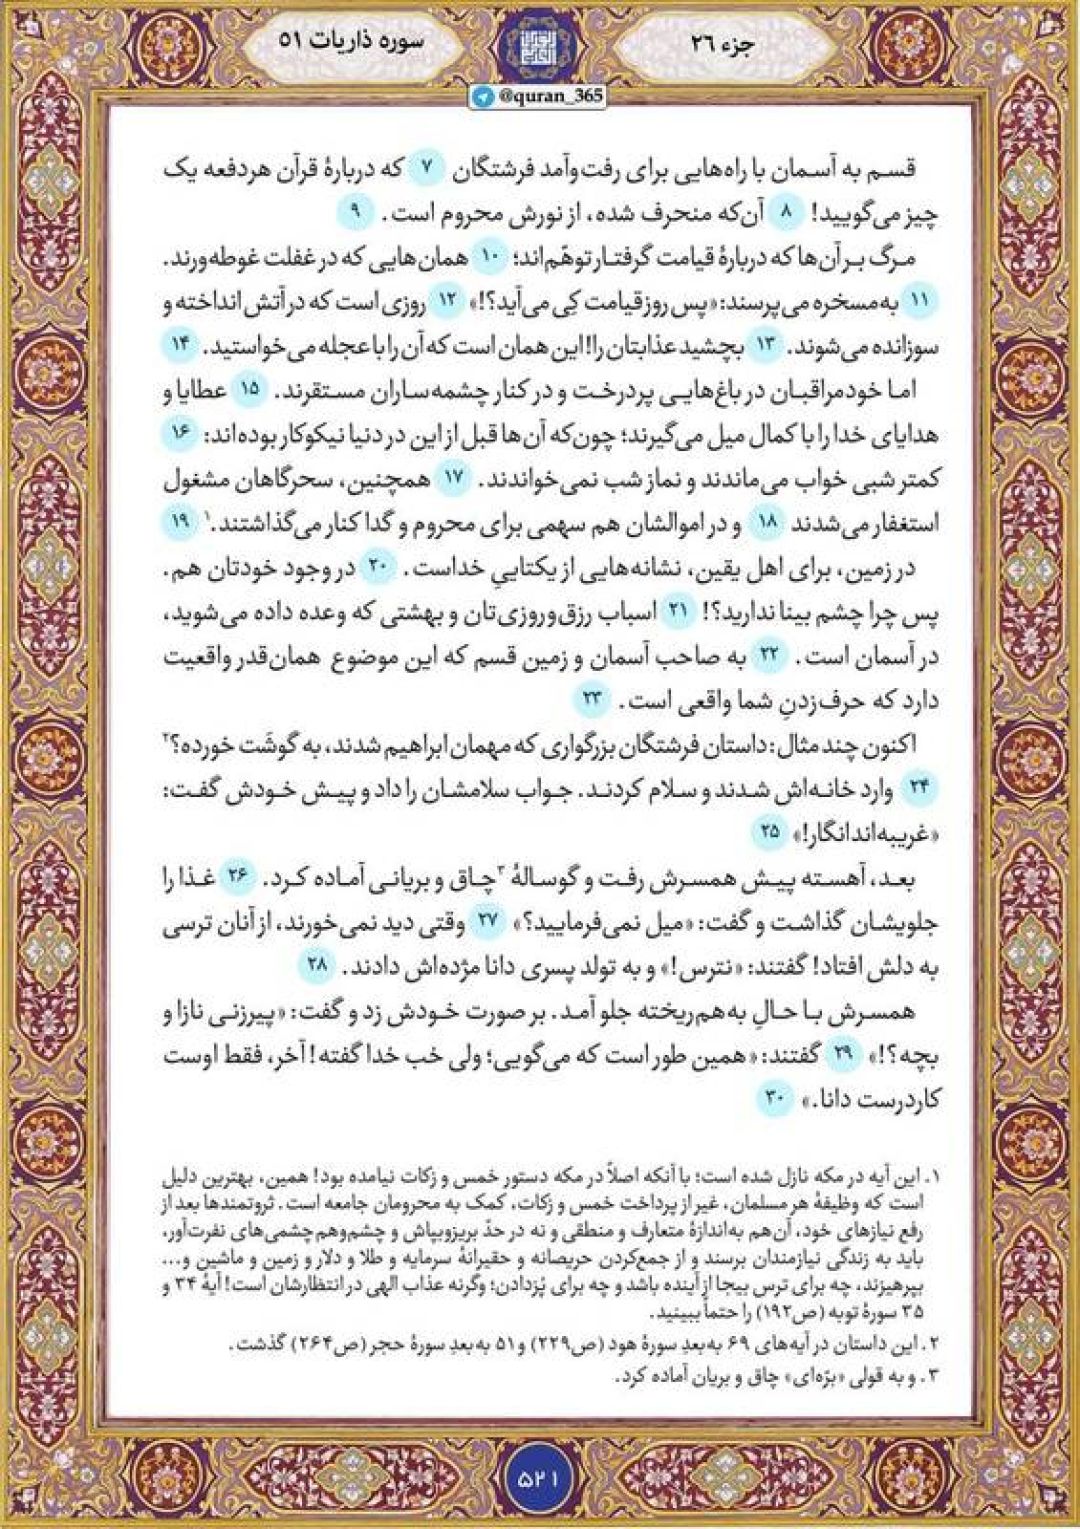 جزء ۲۶
سوره ذاریات ۵۱
@quran_365
قسم به آسمان با راه‌هایی برای رفت‌وآمد فرشتگان ۷ که دربارهٔ قرآن هردفعه یک
چیز می‌گویید! ۸ آن‌که منحرف شده، از نورش محروم است. ۹
مرگ بر آن‌ها که دربارهٔ قیامت گرفتار توهّم‌اند؛ ۱۰ همان‌هایی که در غفلت غوطه‌ورند.
۱۱ به‌مسخره می‌پرسند: «پس روز قیامت کِی می‌آید؟!» ۱۲ روزی است که در آتش انداخته و
سوزانده می‌شوند. ۱۳ بچشید عذابتان را! این همان است که آن را با عجله می‌خواستید. ۱۴
اما خودمراقبان در باغ‌هایی پردرخت و در کنار چشمه‌ساران مستقرند. ۱۵ عطایا و
هدایای خدا را با کمال میل می‌گیرند؛ چون‌که آن‌ها قبل از این در دنیا نیکوکار بوده‌اند: ۱۶
کمتر شبی خواب می‌ماندند و نماز شب نمی‌خواندند. ۱۷ همچنین، سحرگاهان مشغول
استغفار می‌شدند ۱۸ و در اموالشان هم سهمی برای محروم و گدا کنار می‌گذاشتند.۱ ۱۹
در زمین، برای اهل یقین، نشانه‌هایی از یکتاییِ خداست. ۲۰ در وجود خودتان هم.
پس چرا چشم بینا ندارید؟! ۲۱ اسباب رزق‌وروزی‌تان و بهشتی که وعده داده می‌شوید،
در آسمان است. ۲۲ به صاحب آسمان و زمین قسم که این موضوع همان‌قدر واقعیت
دارد که حرف‌زدنِ شما واقعی است. ۲۳
اکنون چند مثال: داستان فرشتگان بزرگواری که مهمان ابراهیم شدند، به گوشَت خورده؟۲
۲۴ وارد خانه‌اش شدند و سلام کردند. جواب سلامشان را داد و پیش خودش گفت:
«غریبه‌اند انگار!» ۲۵
بعد، آهسته پیش همسرش رفت و گوسالهٔ۳ چاق و بریانی آماده کرد. ۲۶ غذا را
جلویشان گذاشت و گفت: «میل نمی‌فرمایید؟» ۲۷ وقتی دید نمی‌خورند، از آنان ترسی
به دلش افتاد! گفتند: «نترس!» و به تولد پسری دانا مژده‌اش دادند. ۲۸
همسرش با حالِ به‌هم‌ریخته جلو آمد. بر صورت خودش زد و گفت: «پیرزنی نازا و
بچه؟!» ۲۹ گفتند: «همین طور است که می‌گویی؛ ولی خب خدا گفته! آخر، فقط اوست
کاردرست دانا.» ۳۰
۱. این آیه در مکه نازل شده است؛ با آنکه اصلاً در مکه دستور خمس و زکات نیامده بود! همین، بهترین دلیل
است که وظیفهٔ هر مسلمان، غیر از پرداخت خمس و زکات، کمک به محرومان جامعه است. ثروتمندها بعد از
رفع نیازهای خود، آن‌هم به‌اندازهٔ متعارف و منطقی و نه در حدّ بریزوبپاش و چشم‌وهم‌چشمی‌های نفرت‌آور،
باید به زندگی نیازمندان برسند و از جمع‌کردن حریصانه و حقیرانهٔ سرمایه و طلا و دلار و زمین و ماشین و...
بپرهیزند، چه برای ترس بیجا از آینده باشد و چه برای پُزدادن؛ وگرنه عذاب الهی در انتظارشان است! آیهٔ ۳۴ و
۳۵ سورهٔ توبه (ص۱۹۲) را حتماً ببینید.
۲. این داستان در آیه‌های ۶۹ به‌بعدِ سورهٔ هود (ص۲۲۹) و ۵۱ به‌بعدِ سورهٔ حجر (ص۲۶۴) گذشت.
۳. و به قولی «برّه‌ای» چاق و بریان آماده کرد.
۵۲۱